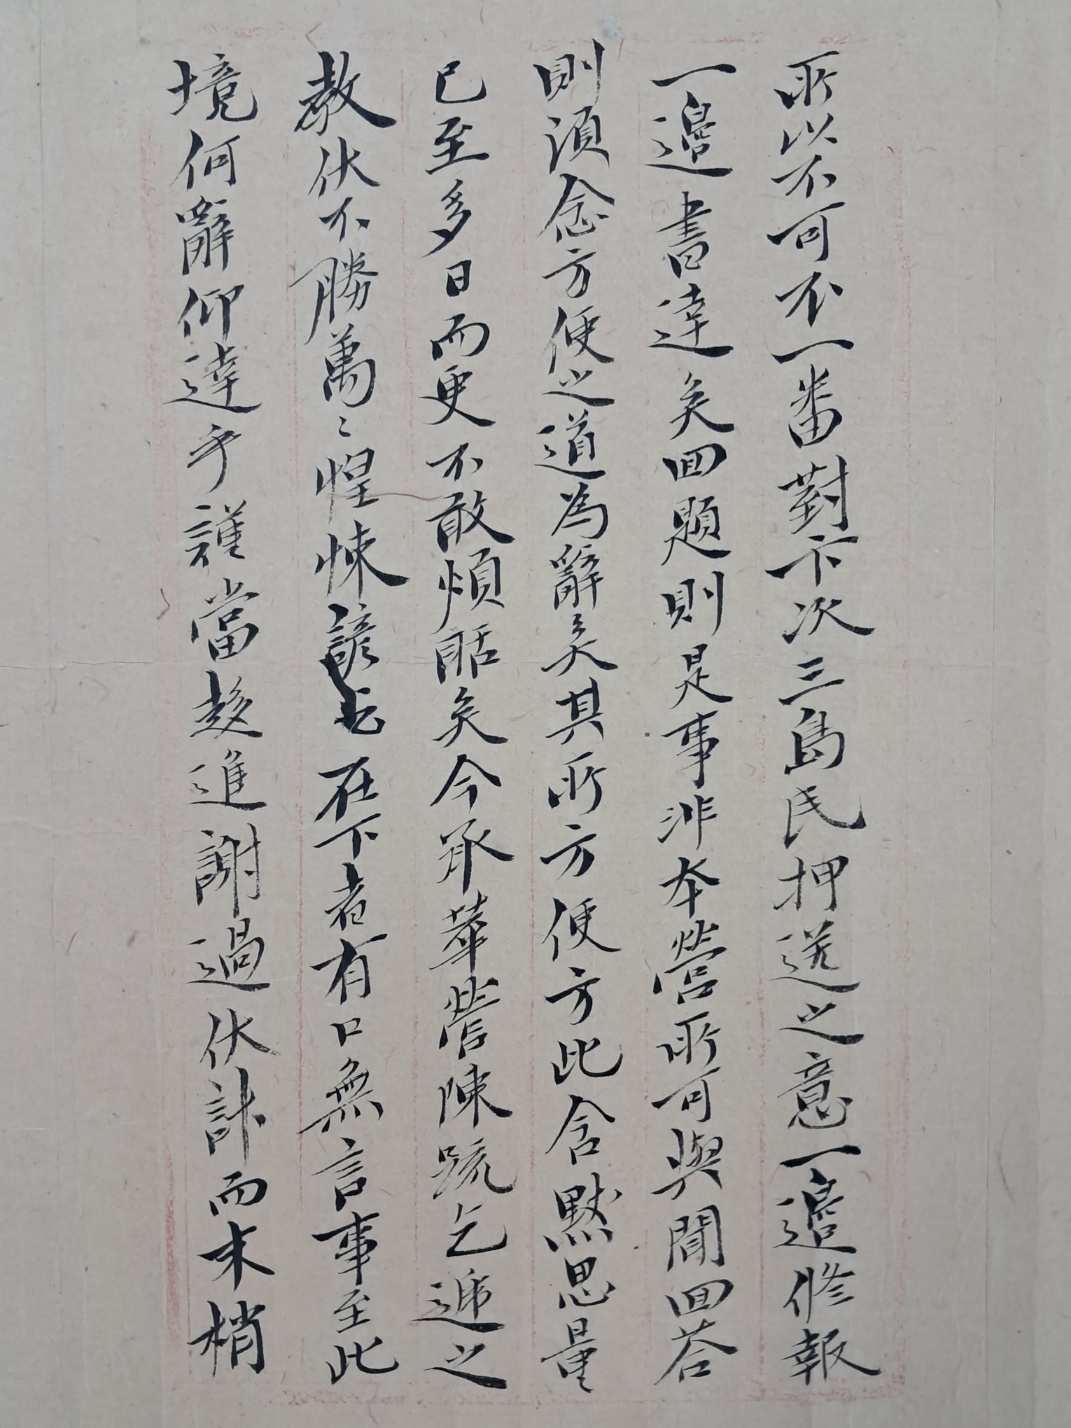 所以不可不一番對下次三島民押送之意一邊修報
一邊書達矣回題則是事非本營所可與聞回答
則須念方便之道為辭矣其所方便方此含默思量
已至多日而更不敢煩聒矣今承華營陳疏乞遞之
教伏不勝萬〻惶悚諺云在下者有口無言事至此
境何辭仰達乎謹當趍進謝過伏計而末梢